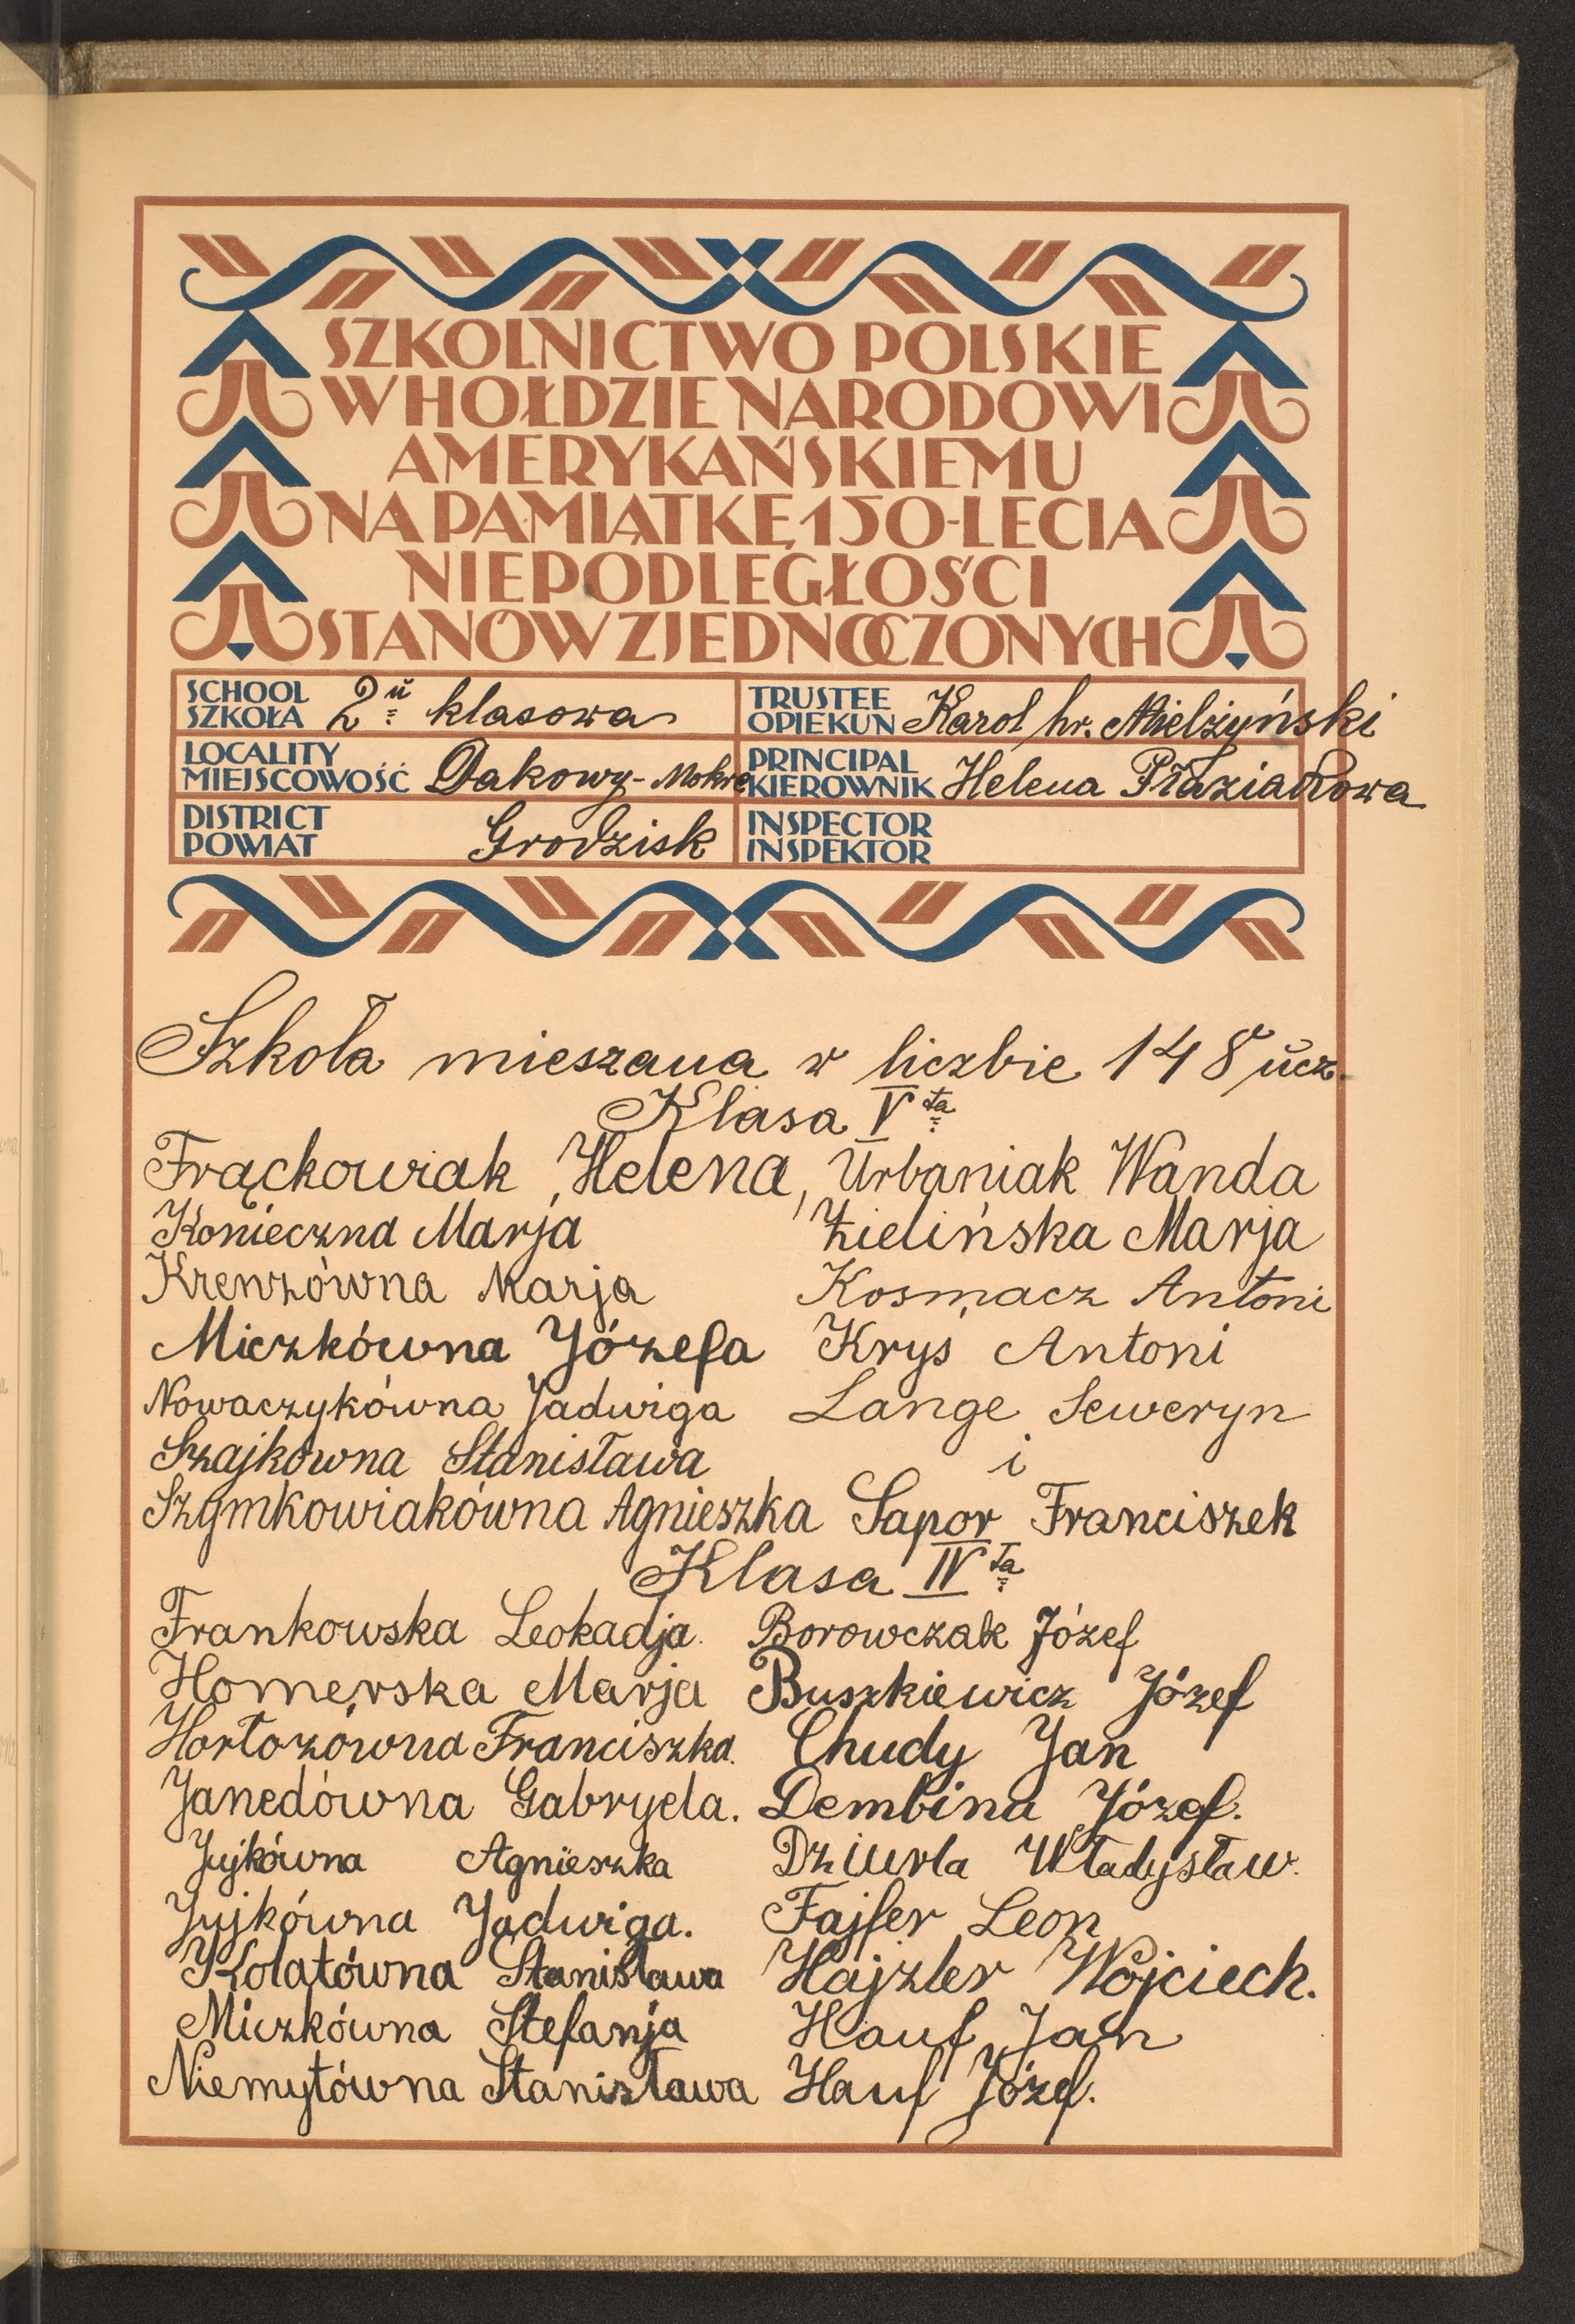 SZKOLNICTWO POLSKIE
W HOŁDZIE NARODOWI
AMERYKAŃSKIEMU
NA PAMIĄTKĘ 150-LECIA
NIEPODLEGŁOŚCI
STANÓW ZJEDNOCZONYCH
SCHOOL
SZKOŁA 2 klasowa
TRUSTEE
OPIEKUN Karol hr. Mielżyński
LOCALITY
MIEJSCOWOŚĆ Dakowy-Mokre
PRINCIPAL
KIEROWNIK Helena
DISTRICT
POWIAT Grodzisk
INSPECTOR
INSPEKTOR
Szkoła mieszana w liczbie 148 ucz.
Klasa V ta
Frąckowiak, Helena, Urbaniak Wanda
Konieczna Marja Zielińska Marja
Krenzówna Marja Kosmacz Antoni
Miczkówna Józefa Kryś Antoni
Nowaczykówna Jadwiga Lange Seweryn
Szajkówna Stanisława i
Szymkowiakówna Agnieszka Sapor Franciszek
Klasa IV ta
Frankowska Leokadja. Borowczak Józef
Homerska Marja Buszkiewicz Józef
Hortozówna Franciszka. Chudy Jan
Janedówna Gabryela. Dembina Józef.
Jujkówna Agnieszka Dziurla Władysław.
Jujkówna Jadwiga. Fajfer Leon
Kolatówna Stanisława Hajzler Wojciech.
Miczkówna Stefanja Hauf Jan
Niemytówna Stanisława Hauf Józef.